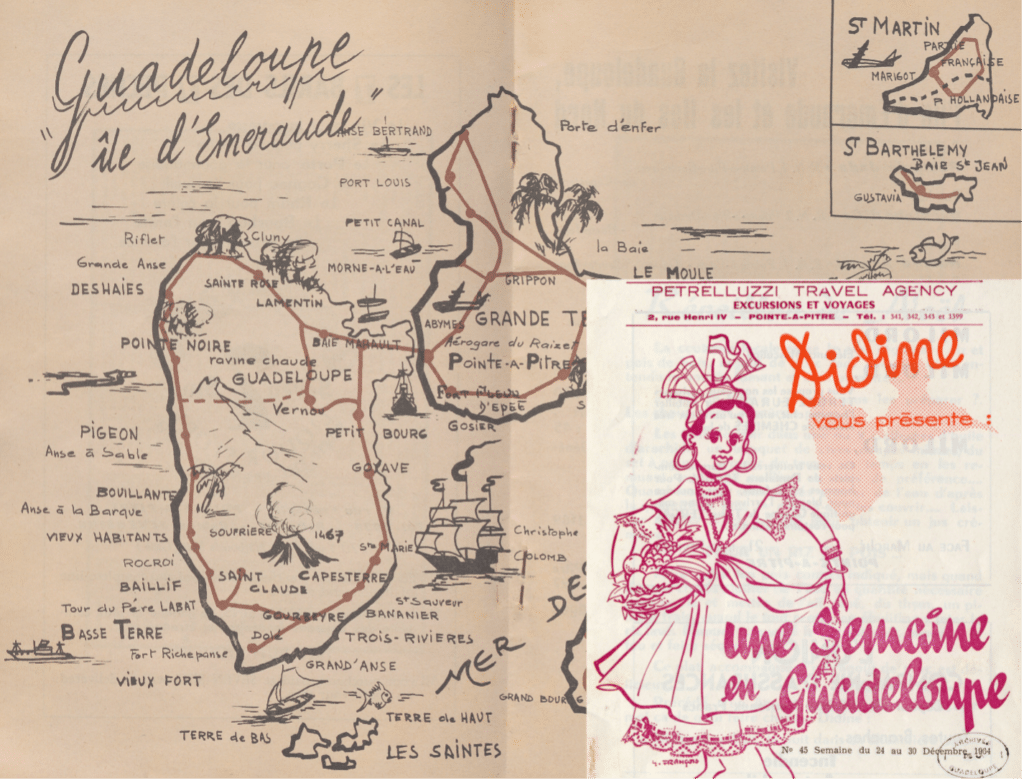 Guadeloupe
"île d'Emeraude"
ST MARTIN
PARTIE
FRANÇAISE
MARIGOT
PIE HOLLANDAISE
ST BARTHELEMY
BAIE St JEAN
GUSTAVIA
ANSE BERTRAND
Porte d'enfer
PORT LOUIS
PETIT CANAL
Riflet
Cluny
la Baie
Grande Anse
MORNE-A-L'EAU
LE MOULE
DESHAIES
SAINTE ROSE
GRIPPON
LAMENTIN
ABYMES
GRANDE TE
POINTE NOIRE
BAIE MAHAULT
Aérogare du Raizet
ravine chaude
POINTE-A-PITRE
GUADELOUPE
FORT FLEUR
D'EPÉE
Vernou
GOSIER
PIGEON
PETIT BOURG
Anse à Sable
GOYAVE
BOUILLANTE
Anse à la Barque
SOUFRIÈRE
1467
Christophe
COLOMB
VIEUX HABITANTS
Ste MARIE
ROCROI
SAINT
CLAUDE
CAPESTERRE
BAILLIF
DES
Tour du Père LABAT
St Sauveur
GOURBEYRE
BANANIER
BASSE TERRE
Dolé
TROIS-RIVIERES
Fort Richepanse
GRAND'ANSE
MER
VIEUX FORT
GRAND BOURG
TERRE de HAUT
TERRE de BAS
LES SAINTES
PETRELLUZZI TRAVEL AGENCY
EXCURSIONS ET VOYAGES
2, rue Henri IV – POINTE-A-PITRE – Tél. : 341, 342, 343 et 1399
Didine
vous présente :
une Semaine
en Guadeloupe
No 45 Semaine du 24 au 30 Décembre 1964
ARCHIVES
GUADELOUPE